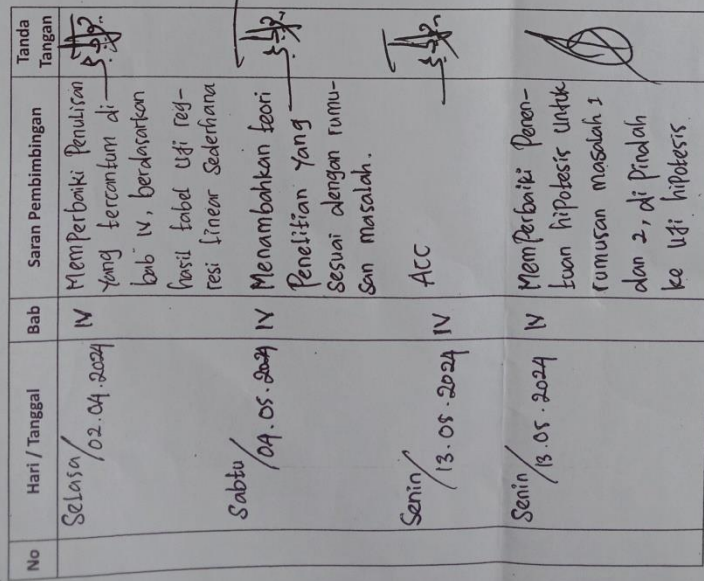 No Hari / Tanggal Bab Saran Pembimbingan Tanda Tangan
Selasa/02.04.2024 IV MemPerbaiki Penulisan
Yang tercantum di
bab IV, berdasarkan
hasil tabel Uji reg-
resi linear Sederhana
Sabtu/04.05.2024 IV Menambahkan teori
Penelitian Yang
Sesuai dengan rumu-
san masalah.
Senin/13.05.2024 IV ACC
Senin/13.05.2024 IV MemPerbaiki Penen-
tuan hiPotesis untuk
rumusan masalah 1
dan 2, di Pindah
ke Uji hiPotesis.